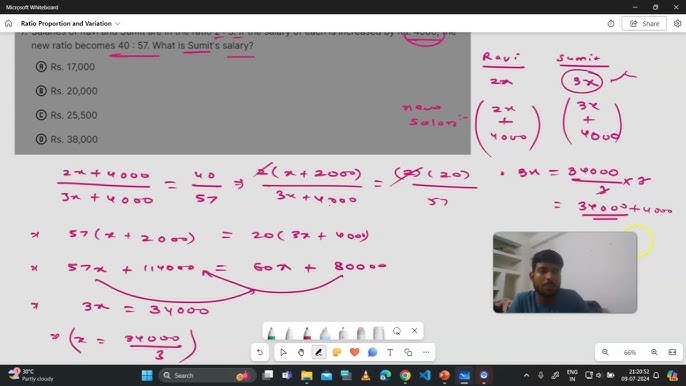 Microsoft Whiteboard
Ratio Proportion and Variation
Share
7. Salaries of Ravi and Sumit are in the ratio 2 : 3. If the salary of each is increased by Rs. 4000, the
new ratio becomes 40 : 57. What is Sumit's salary?
A Rs. 17,000
B Rs. 20,000
C Rs. 25,500
D Rs. 38,000
Ravi Sumit
2x 3x
new salary:-
(2x + 4000) (3x + 4000)
2x + 4000 / 3x + 4000 = 40 / 57 ⇒ 2(x + 2000) / 3x + 4000 = (2)(20) / 57
57(x + 2000) = 20(3x + 4000)
57x + 114000 = 60x + 80000
3x = 34000
⇒ (x = 34000 / 3)
3x = 34000 / 3 × 3
= 34000 + 4000
66%
30°C
Partly cloudy
Search
ENG
IN
21:20:52
09-07-2024